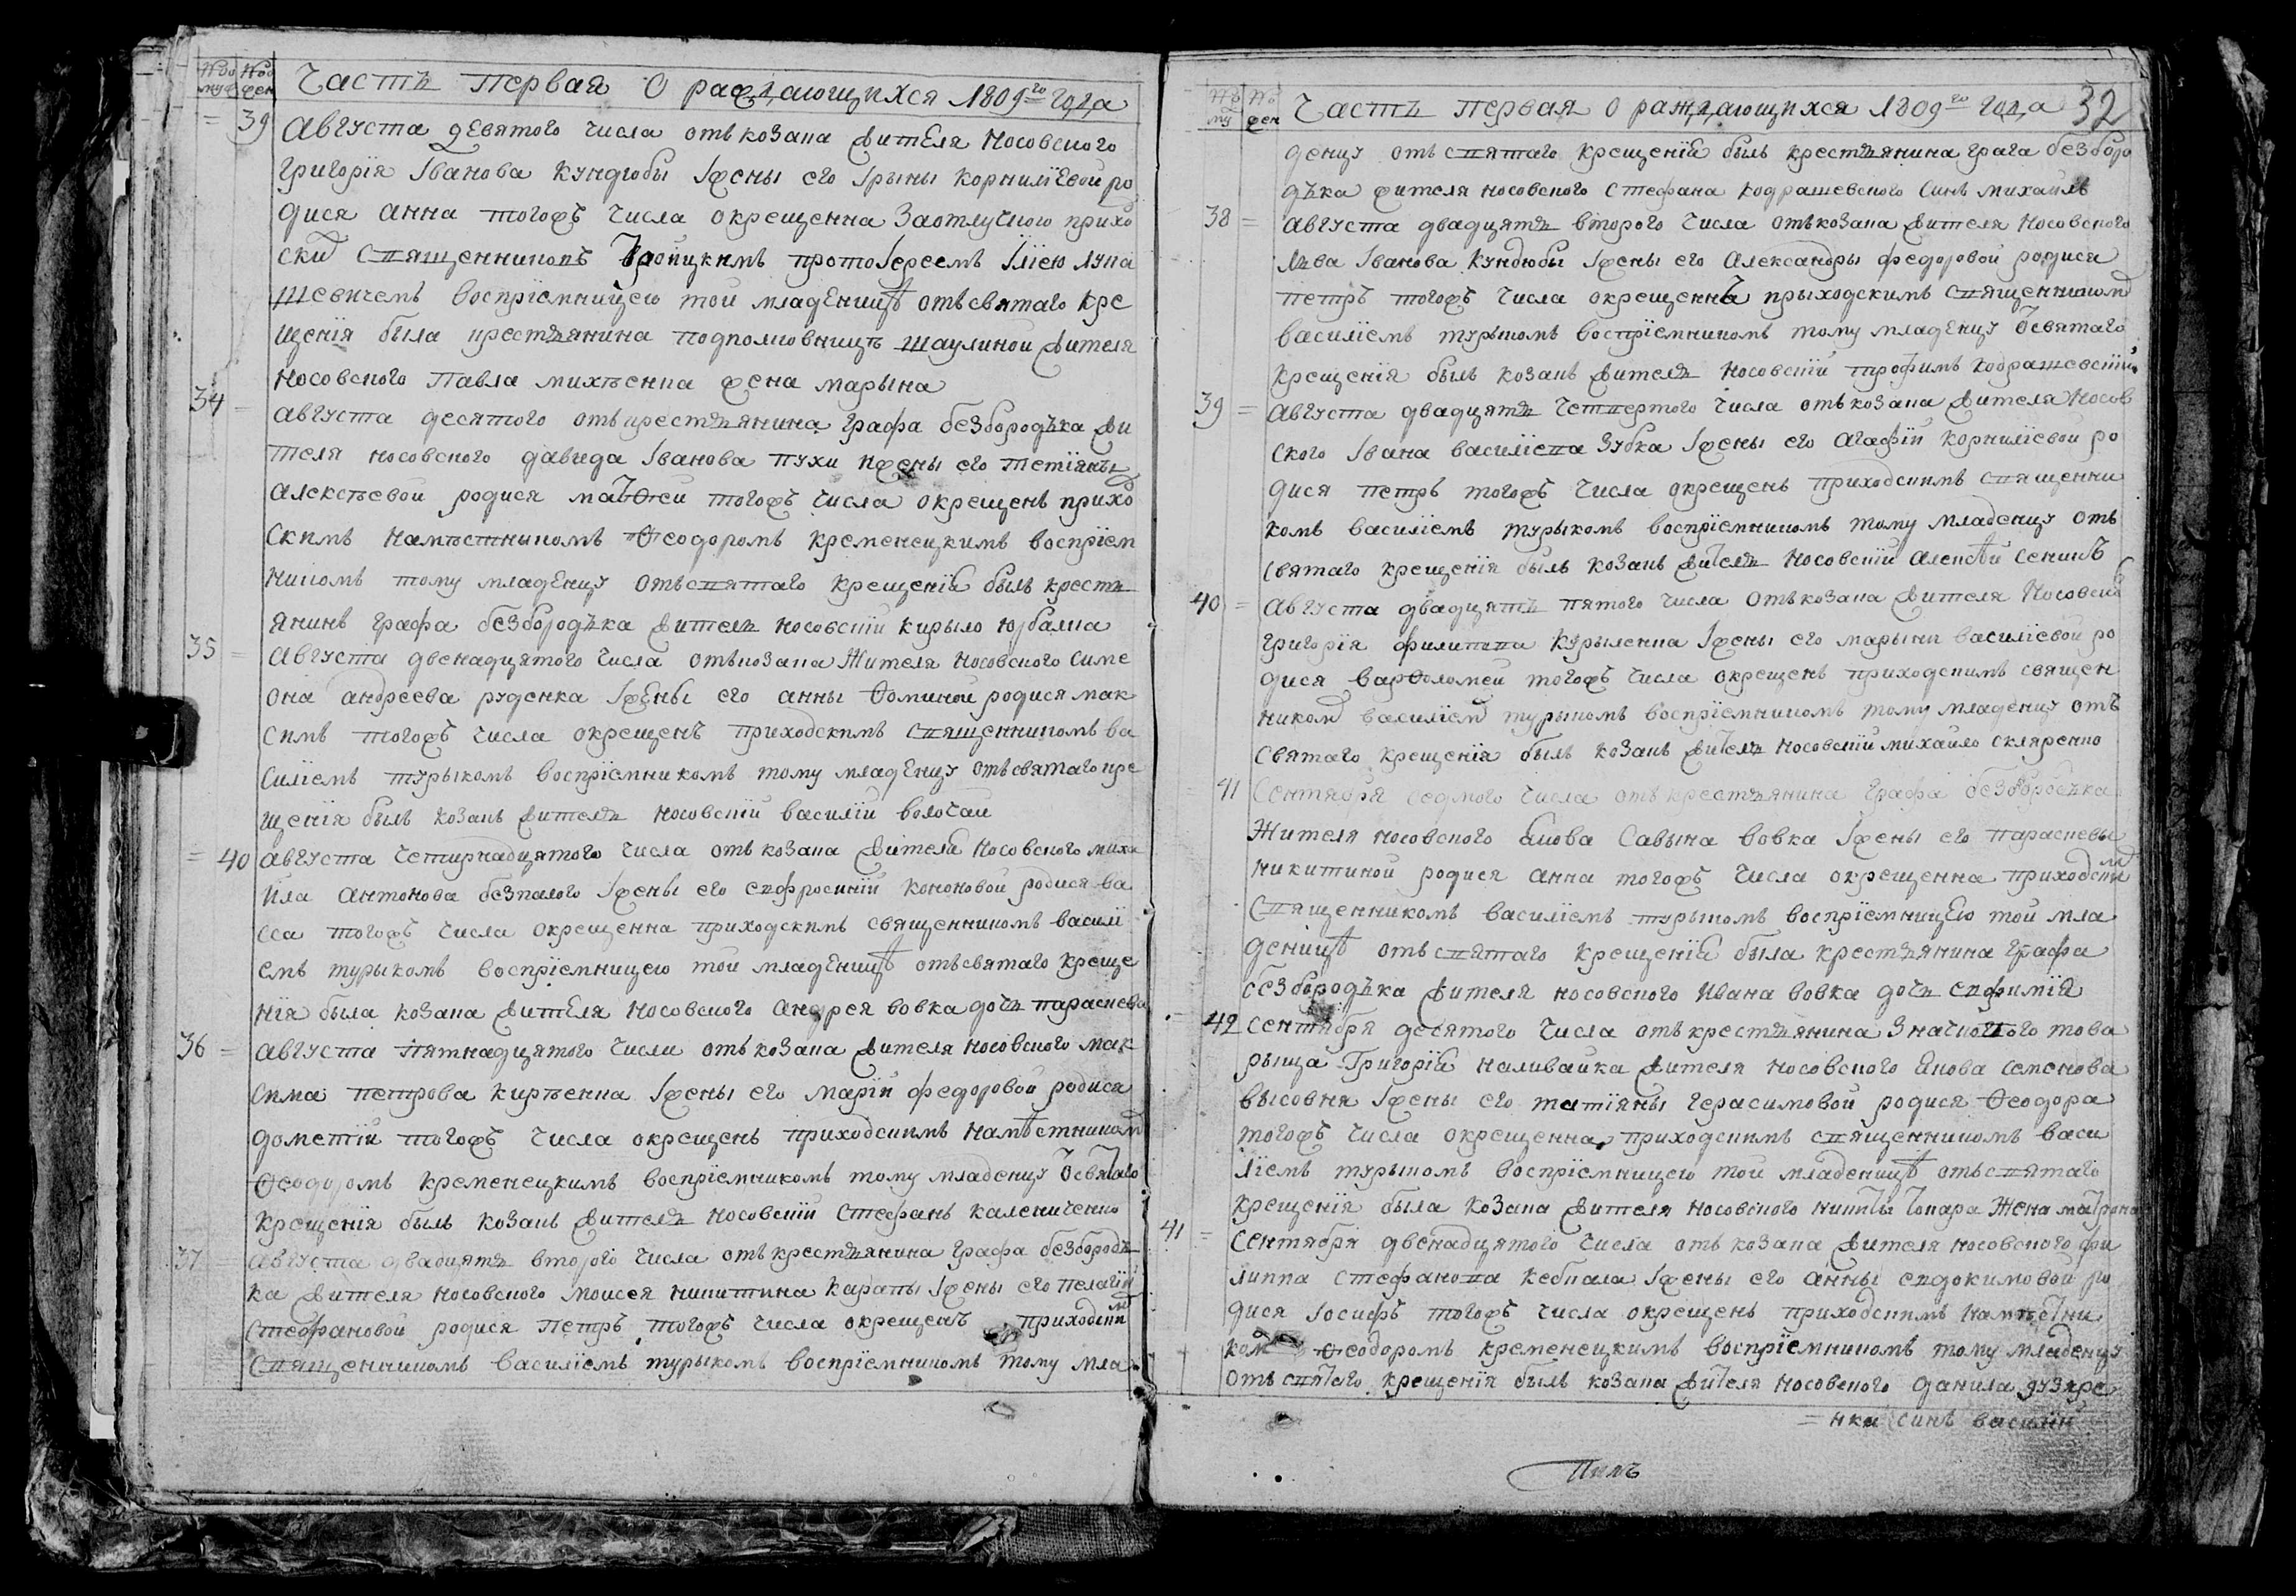 Часть первая О раждающихся 1809го года
39 Августа девятого числа отъ козака жителя Носовского
Григорїя Іванова Кундюбы Іжены его Ірыны Корнилїевой ро
дися Анна тогожъ числа окрещенна Заотлучного прихо
ским священникомъ Троицкимъ протоІереемъ Іліею Лупа
шевичемъ воспрїемницею той младенице отъ святаго кре
щенїя была крестьянина подполковницы Шаулиной жителя
Носовского Павла михѣенка жена марына
34 = Августа десятого отъ крестьянина графа безбородька жи
теля носовского давида Іванова пухи ижены его тетїяны
Алексѣевой родися маѳей тогожъ числа окрещенъ прихо
скимъ намѣстникомъ Ѳеодоромъ кременецкимъ воспрїем
никомъ тому младенцу отъ святаго крещенїя былъ кресть
янинъ графа безбородька житель носовскїй кирыло
35 = Августа двенадцятого числа отъ козака Жителя Носовского Симе
она андреева руденка Іжены его анны Ѳоминой родися мак
симъ тогожъ числа окрещенъ приходскимъ священникомъ ва
силїемъ турыкомъ воспрїемникомъ тому младенцу отъ святаго кре
щенїя былъ козакъ житель носовскїй василїй волочай
= 40 Августа четирнадцятого числа отъ козака жителя Носовского миха
йла антонова безпалого Іжены его евфросинїй кононовой родися ва
сса тогожъ числа окрещенна приходскимъ священникомъ василї
емъ турыкомъ воспрїемницею той младенице отъ святаго креще
нїя была козака жителя Носовского андрея вовка дочь параскева
36 = Августа пятнадцятого числа отъ козака жителя носовского мак
сима петрова кирѣенка Іжены его марїй федоровой родися
дометїй тогожъ числа окрещенъ приходскимъ намѣстником
Ѳеодоромъ кременецкимъ воспрїемникомъ тому младенцу от святаго
крещенїя былъ козакъ житель носовскїй Стефанъ калениченко
37 = Августа двадцять второго числа отъ крестьянина графа безбородь
ка жителя носовского моисея никитина карапы Іжены его пелагїи
стефановой родися петръ тогожъ числа окрещенъ приходским
священникомъ василїемъ турыкомъ воспрїемникомъ тому мла
Часть первая О раждающихся 1809го года 32
денцу отъ святаго крещенїя былъ крестьянина графа безборо
дька жителя носовского стефана кодрашевского синъ михайлъ
38 = Августа двадцять второго числа отъ козака жителя Носовского
льва Іванова Кундюбы Іжены его Александры федоровой родися
петръ тогожъ числа окрещенъ прыходскимъ священником
василїемъ турыкомъ воспрїемникомъ тому младенцу от святаго
крещенїя былъ козакъ житель носовскїй трофимъ кодрашевскїй
39 = Августа двадцять четвертого числа отъ козака жителя Носов
ского Івана василїева Зубка Іжены его агафїй корнилїевой ро
дися петръ тогожъ числа окрещенъ приходскимъ священни
комъ василїемъ турыкомъ воспрїемникомъ тому младенцу отъ
святаго крещенїя былъ козакъ житель носовскїй алексѣй сеникъ
40 = Августа двадцять пятого числа отъ козака жителя Носовского
григорїя филипова курыленка Іжены его марыни василїевой ро
дися варѳоломей тогожъ числа окрещенъ приходскимъ священ
ником василїем турыкомъ воспрїемникомъ тому младенцу отъ
святаго крещенїя былъ козакъ житель носовскїй михайло скляренко
41 Сентября седмого числа отъ крестьянина графа безбородька
Жителя носовского Якова Савына вовка Іжены его параскевы
никитиной родися анна тогожъ числа окрещенна приходским
священникомъ василїемъ турыкомъ воспрїемницею той мла
денице отъ святаго крещенїя была крестьянина графа
безбородька жителя носовского ивана вовка дочь евфимїя
42 Сентября десятого числа отъ крестьянина Значкового това
рыща Григорїя наливайка жителя носовского Якова семенова
высовня Іжены его татїяны герасимовой родися Ѳеодора
тогожъ числа окрещенна приходскимъ священникомъ васи
лїемъ турыкомъ воспрїемницею той младенице отъ святаго
крещенїя была козака жителя носовского никиты Жена матрона
41 = Сентября двенадцятого числа отъ козака жителя носовского фи
липпа стефанова Іжены его анны евдокимовой ро
дися Іосифъ тогожъ числа окрещенъ приходскимъ намѣстни
ком Ѳеодоромъ кременецкимъ воспрїемникомъ тому младенцу
отъ святаго крещенїя былъ козака жителя носовского данила дузяре
= нка синъ василїй